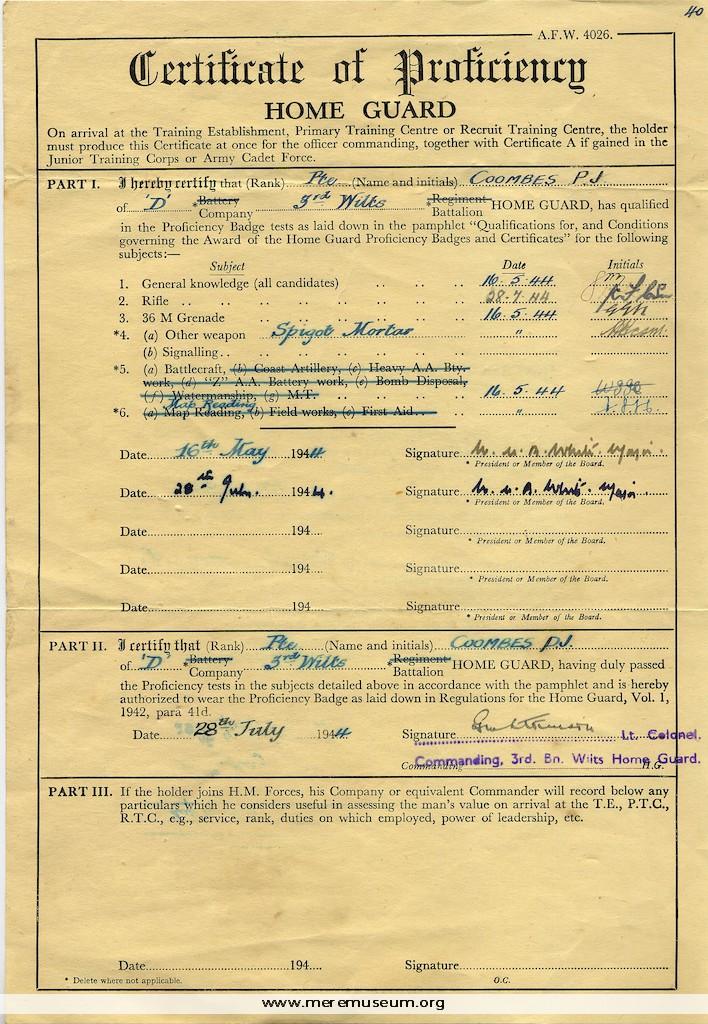 40
A.F.W. 4026.
Certificate of Proficiency
HOME GUARD
On arrival at the Training Establishment, Primary Training Centre or Recruit Training Centre, the holder
must produce this Certificate at once for the officer commanding, together with Certificate A if gained in the
Junior Training Corps or Army Cadet Force.
PART I. I hereby certify that (Rank) Pte (Name and initials) COOMBES P.J.
of 'D' *Battery Company 3rd Wilts *Regiment Battalion HOME GUARD, has qualified
in the Proficiency Badge tests as laid down in the pamphlet "Qualifications for, and Conditions
governing the Award of the Home Guard Proficiency Badges and Certificates" for the following
subjects:—
Subject Date Initials
1. General knowledge (all candidates) .. .. .. 16.5.44
2. Rifle .. .. .. .. .. .. .. .. 28.7.44
3. 36 M Grenade .. .. .. .. .. .. 16.5.44
*4. (a) Other weapon Spigot Mortar "
(b) Signalling .. .. .. .. .. .. ..
*5. (a) Battlecraft, (b) Coast Artillery, (c) Heavy A.A. Bty.
work, (d) "Z" A.A. Battery work, (e) Bomb Disposal,
(f) Watermanship, (g) M.T. .. .. .. .. 16.5.44
Map Reading
*6. (a) Map Reading, (b) Field works, (c) First Aid .. .. "
Date 16th May 1944 Signature Major.
* President or Member of the Board.
Date 28th July. 1944. Signature Major.
* President or Member of the Board.
Date 194 Signature
* President or Member of the Board.
Date 194 Signature
* President or Member of the Board.
Date 194 Signature
* President or Member of the Board.
PART II. I certify that (Rank) Pte (Name and initials) COOMBES P.J.
of 'D' *Battery Company 3rd Wilts *Regiment Battalion HOME GUARD, having duly passed
the Proficiency tests in the subjects detailed above in accordance with the pamphlet and is hereby
authorized to wear the Proficiency Badge as laid down in Regulations for the Home Guard, Vol. 1,
1942, para 41d.
Date 28th July 1944 Signature Lt. Colonel.
Commanding, 3rd. Bn. Wilts Home Guard.
Commanding H.G.
PART III. If the holder joins H.M. Forces, his Company or equivalent Commander will record below any
particulars which he considers useful in assessing the man's value on arrival at the T.E., P.T.C.,
R.T.C., e.g., service, rank, duties on which employed, power of leadership, etc.
Date 194 Signature
* Delete where not applicable. O.C.
www.meremuseum.org